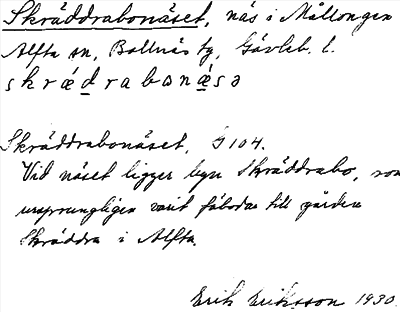 Skräddrabonäset, näs i Mållongen
Alfta sn, Bollnäs tg, Gävleb. l.
skrǽdrabonǽsə
Skräddrabonäset, G 104.
Vid näset ligger byn Skräddrabo, som
ursprungligen varit fäbodar till gården
Skräddra i Alfta.
Erik Eriksson 1930.